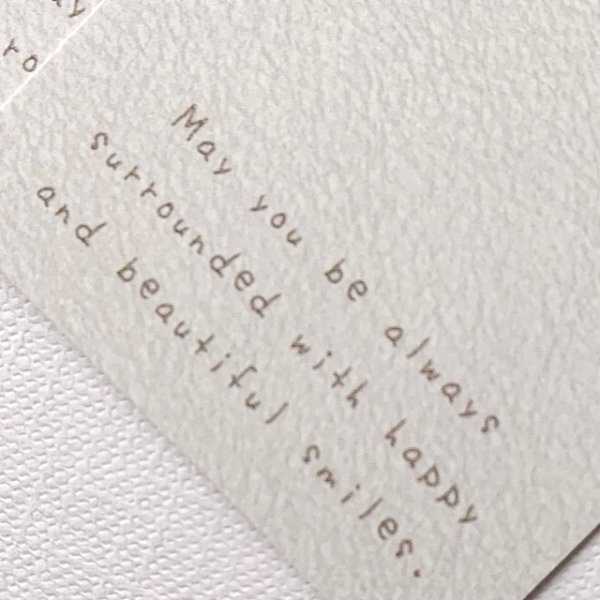 May you be always
surrounded with happy
and beautiful smiles.